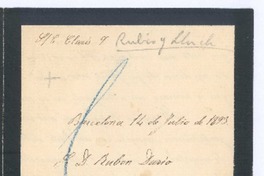 S/C. Claris 9 Rubió y Lluch
Barcelona 14 de Julio de 1893
S. D. Rubén Darío